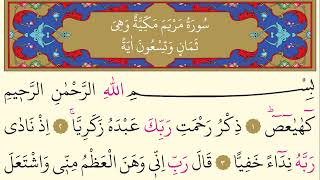 سُورَةُ مَرْيَمَ مَكِّيَّةٌ وَهِيَ
ثَمَانٍ وَتِسْعُونَ اٰيَةً
بِسْمِ اللّٰهِ الرَّحْمٰنِ الرَّحِيمِ
كٓهٰيٰعٓصٓ ۚ ﴿١﴾ ذِكْرُ رَحْمَتِ رَبِّكَ عَبْدَهُ زَكَرِيَّاۚ ﴿٢﴾ اِذْ نَادٰى
رَبَّهُ نِدَٓاءً خَفِيًّا ﴿٣﴾ قَالَ رَبِّ اِنّ۪ي وَهَنَ الْعَظْمُ مِنّ۪ي وَاشْتَعَلَ